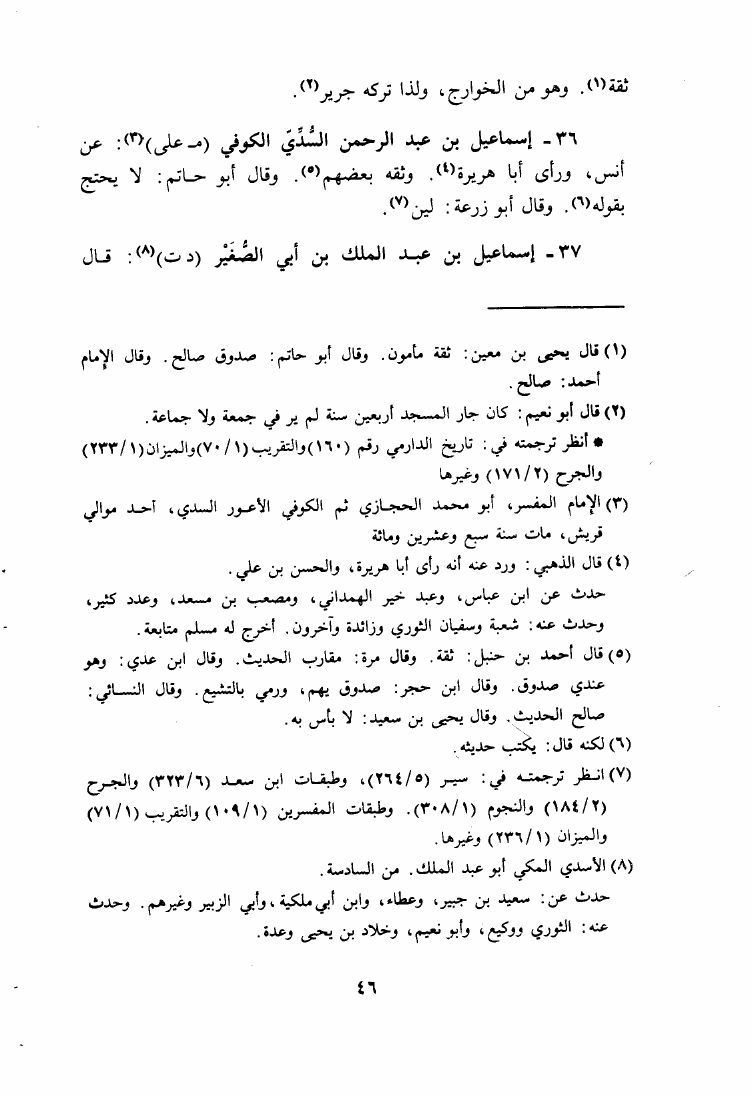 ثقة(١). وهو من الخوارج، ولذا تركه جرير(٢).
٣٦ - إسماعيل بن عبد الرحمن السُّدِّيّ الكوفي (مـ على)(٣): عن
أنس، ورأى أبا هريرة(٤). وثقه بعضهم(٥). وقال أبو حـاتم: لا يحتج
بقوله(٦). وقال أبو زرعة: لين(٧).
٣٧ - إسماعيل بن عبـد الملك بن أبي الصُّغَيْر (د ت)(٨): قـال
(١) قال يحيى بن معين: ثقة مأمون. وقال أبو حاتم: صدوق صالح. وقال الإمام
أحمد: صالح.
(٢) قال أبو نعيم: كان جار المسجد أربعين سنة لم ير في جمعة ولا جماعة.
* أنظر ترجمته في: تاريخ الدارمي رقم (١٦٠) والتقريب (١/ ٧٠) والميزان (١/ ٢٣٣)
والجرح (٢/ ١٧١) وغيرها
(٣) الإمام المفسر، أبو محمد الحجـازي ثم الكوفي الأعـور السدي، أحـد موالي
قريش، مات سنة سبع وعشرين ومائة
(٤) قال الذهبي: ورد عنه أنه رأى أبا هريرة، والحسن بن علي.
حدث عن ابن عباس، وعبد خير الهمداني، ومصعب بن سعد، وعدد كثير،
وحدث عنه: شعبة وسفيان الثوري وزائدة وآخرون. أخرج له مسلم متابعة.
(٥) قال أحمد بن حنبل: ثقة. وقال مرة: مقارب الحديث. وقال ابن عدي: وهو
عندي صدوق. وقال ابن حجر: صدوق يهم، ورمي بالتشيع. وقال النسـائي:
صالح الحديث. وقال يحيى بن سعيد: لا بأس به.
(٦) لكنه قال: يكتب حديثه.
(٧) انـظر ترجمتـه في: سيـر (٥/ ٢٦٤)، وطبقـات ابن سعـد (٦/ ٣٢٣) والجـرح
(٢/ ١٨٤) والنجوم (١/ ٣٠٨). وطبقات المفسرين (١/ ١٠٩) والتقريب (١/ ٧١)
والميزان (١/ ٢٣٦) وغيرها.
(٨) الأسدي المكي أبو عبد الملك. من السادسة.
حدث عن: سعيد بن جبير، وعطاء، وابن أبي ملكية، وأبي الزبير وغيرهم. وحدث
عنه: الثوري ووكيع، وأبو نعيم، وخلاد بن يحيى وعدة.
٤٦